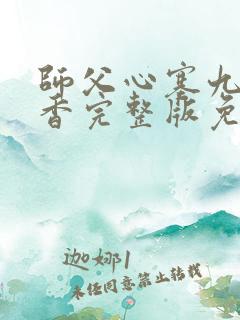 師父心寒九
香完整版免
迦娜1
未经同意禁止转载